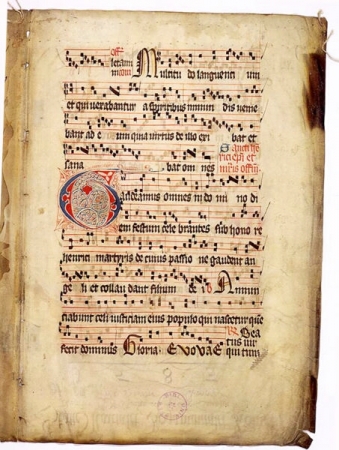 Multitudo languentium
et qui vexabantur a spiritibus immundis venie
bant ad eum quia virtus de illo exibat et
sanabat omnes
Gaudeamus omnes in domino di
em festum celebrantes sub honore
henrici martyris de cuius passione gaudent an
geli et collaudant filium
ciabunt celi iusticiam eius populo qui nascetur que
fecit dominus Gloria. Evovae